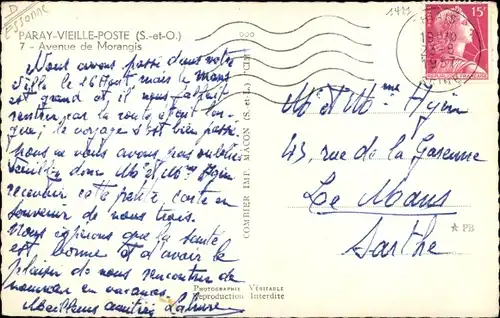 D
Essonne
PARAY-VIEILLE-POSTE (S.-et-O.)
7 - Avenue de Morangis
Nous avons passé dans votre
ville le 16 Août mais le mans
est grand et il nous fallait
rentrer par la route était
le voyage s'est bien passé.
nous ne vous avons pas oublier
veuillez donc Mr et Mme
recevoir cette petite carte en
souvenir de nous trois.
Nous espérons que la santé
est bonne et d'avoir le
plaisir de nous rencontrer de
nouveau en vacances.
Meilleures
COMBIER IMP. MACON (S.-et-L.)
PHOTOGRAPHIE VÉRITABLE
Reproduction Interdite
15F
Mr et Mme
43, rue de la Garenne
Le Mans
Sarthe
PB